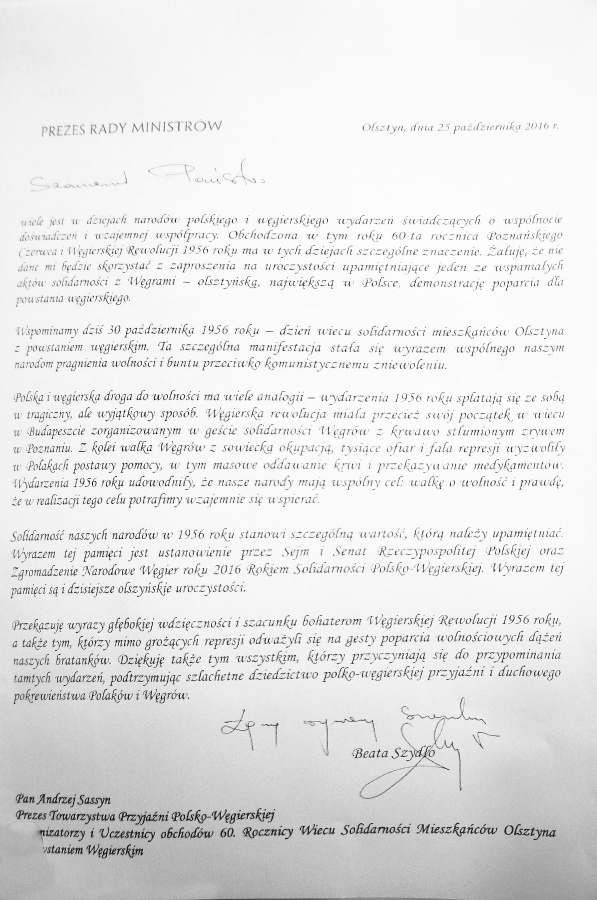 PREZES RADY MINISTRÓW
Olsztyn, dnia 25 października 2016 r.
Szanowni Państwo
wiele jest w dziejach narodów polskiego i węgierskiego wydarzeń świadczących o wspólnocie
doświadczeń i wzajemnej współpracy. Obchodzona w tym roku 60-ta rocznica Poznańskiego
Czerwca i Węgierskiej Rewolucji 1956 roku ma w tych dziejach szczególne znaczenie. Żałuję, że nie
dane mi będzie skorzystać z zaproszenia na uroczystości upamiętniające jeden ze wspaniałych
aktów solidarności z Węgrami – olsztyńską, największą w Polsce, demonstrację poparcia dla
powstania węgierskiego.
Wspominamy dziś 30 października 1956 roku – dzień wiecu solidarności mieszkańców Olsztyna
z powstaniem węgierskim. Ta szczególna manifestacja stała się wyrazem wspólnego naszym
narodom pragnienia wolności i buntu przeciwko komunistycznemu zniewoleniu.
Polska i węgierska droga do wolności ma wiele analogii – wydarzenia 1956 roku splatają się ze sobą
w tragiczny, ale wyjątkowy sposób. Węgierska rewolucja miała przecież swój początek w wiecu
w Budapeszcie zorganizowanym w geście solidarności Węgrów z krwawo stłumionym zrywem
w Poznaniu. Z kolei walka Węgrów z sowiecką okupacją, tysiące ofiar i fala represji wyzwoliły
w Polakach postawy pomocy, w tym masowe oddawanie krwi i przekazywanie medykamentów.
Wydarzenia 1956 roku udowodniły, że nasze narody mają wspólny cel: walkę o wolność i prawdę,
że w realizacji tego celu potrafimy wzajemnie się wspierać.
Solidarność naszych narodów w 1956 roku stanowi szczególną wartość, którą należy upamiętniać.
Wyrazem tej pamięci jest ustanowienie przez Sejm i Senat Rzeczypospolitej Polskiej oraz
Zgromadzenie Narodowe Węgier roku 2016 Rokiem Solidarności Polsko-Węgierskiej. Wyrazem tej
pamięci są i dzisiejsze olszyńskie uroczystości.
Przekazuję wyrazy głębokiej wdzięczności i szacunku bohaterom Węgierskiej Rewolucji 1956 roku,
a także tym, którzy mimo grożących represji odważyli się na gesty poparcia wolnościowych dążeń
naszych bratanków. Dziękuję także tym wszystkim, którzy przyczyniają się do przypominania
tamtych wydarzeń, podtrzymując szlachetne dziedzictwo polko-węgierskiej przyjaźni i duchowego
pokrewieństwa Polaków i Węgrów.
Beata Szydło
Pan Andrzej Sassyn
Prezes Towarzystwa Przyjaźni Polsko-Węgierskiej
nizatorzy i Uczestnicy obchodów 60. Rocznicy Wiecu Solidarności Mieszkańców Olsztyna
wstaniem Węgierskim